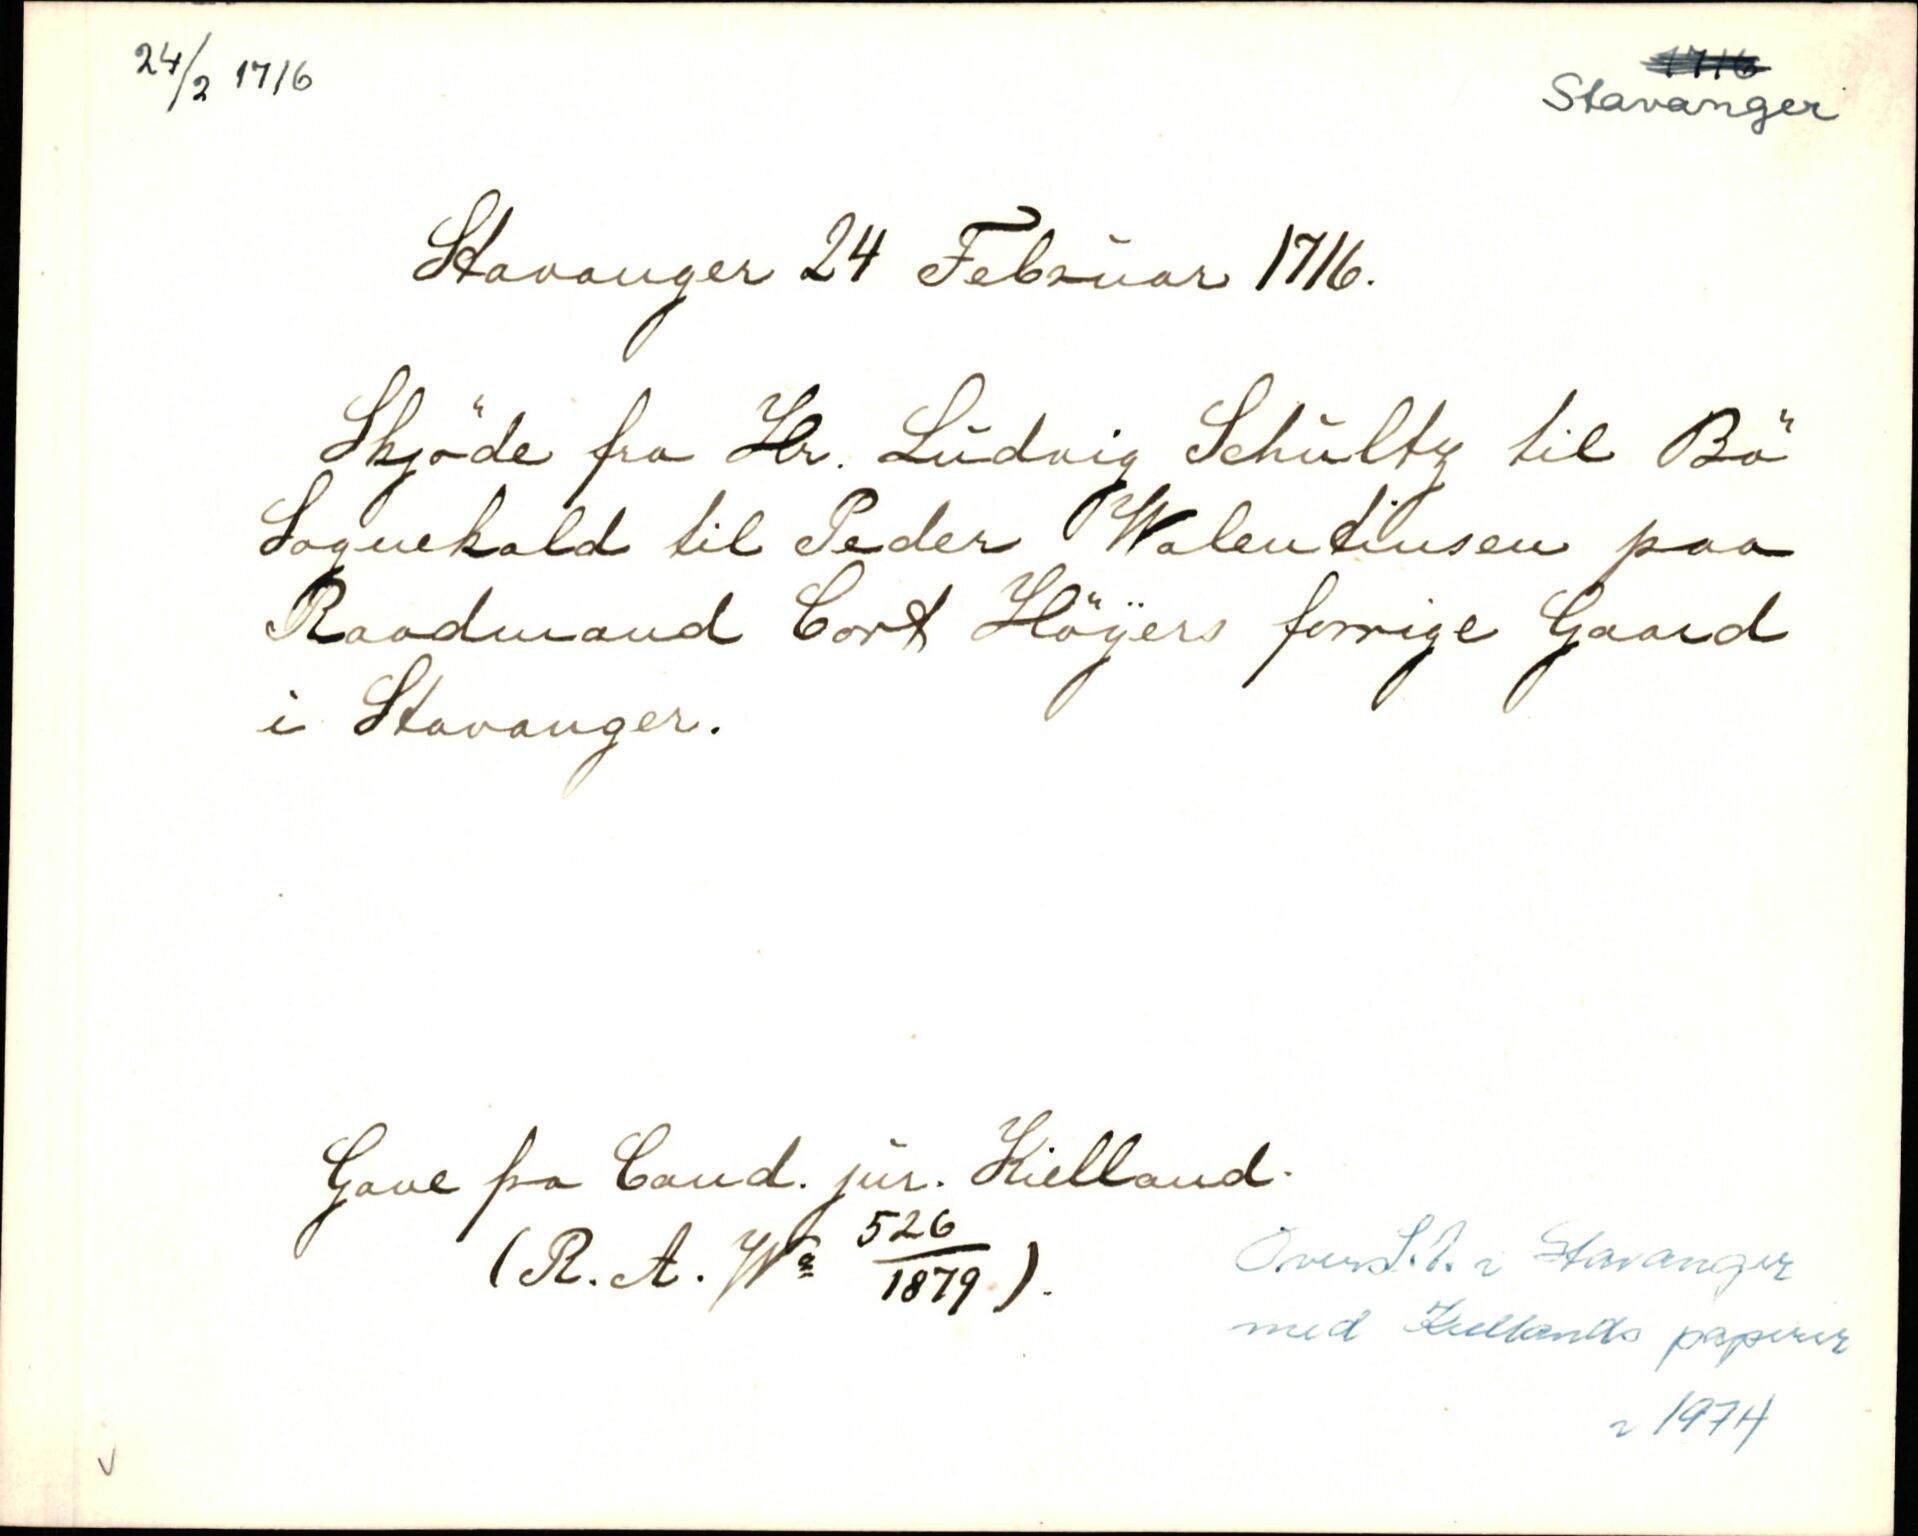 24/2 1716
1716
Stavanger
Stavanger 24 Februar 1716.
Skjöde fra Hr. Ludvig Schultz til Bö
Sognekald til Peder Walentinsen paa
Raadmand Cort Höÿers forrige Gaard
i Stavanger.
Gave fra Cand. jur. Kielland.
(R. A. No 526/1879).
Overf. S.A. i Stavanger
med Kiellands papirer
i 1974